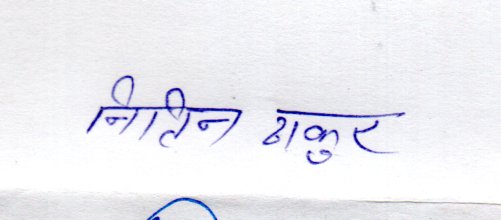 नितिन ठाकुर